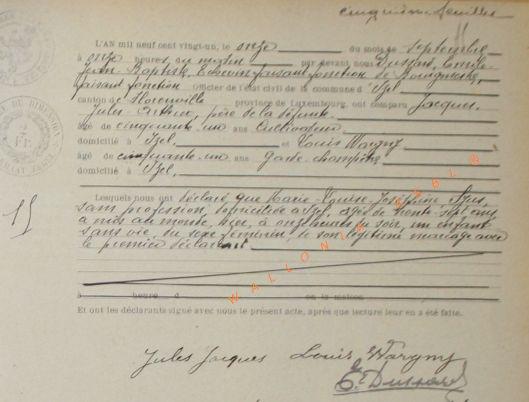 cinquième feuillet
L'AN mil neuf cent vingt-un, le onze du mois de Septembre
à onze heures du matin par devant nous Dussard, Emile-
Jean-Baptiste, Echevin faisant fonction de Bourgmestre,
faisant fonction Officier de l'état civil de la commune d'Izel
canton de Florenville province de Luxembourg, ont comparu Jacques,
Jules père de la
âgé de cinquante un ans Cultivateur
domicilié à Izel, et Louis Wargny
âgé de cinquante-un ans Garde champêtre
domicilié à Izel,
Lesquels nous ont déclaré que Marie-Louise-Joséphine
sans profession, domiciliée à Izel, âgée de trente-sept ans,
a mis au monde, hier, à onze heures du soir, un enfant
sans vie, du sexe féminin, de son légitime mariage avec
le premier déclarant
15
à heure d en la maison
Et ont les déclarants signé avec nous le présent acte, après que lecture leur en a été faite.
Jules Jacques Louis Wargny
E. Dussard
WALLONIE